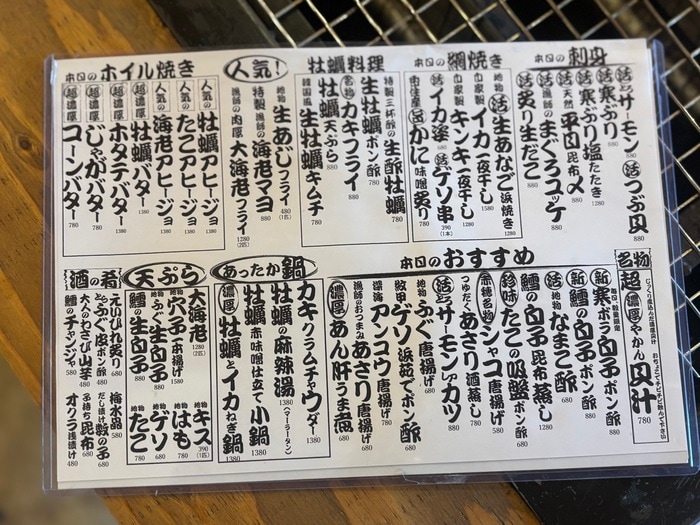 本日の刺身
活とらサーモン 880
活つぶ貝 880
活寒ぶり 880
活寒ぶり塩たたき 1280
活天然平目昆布〆 880
活漁師のまぐろユッケ 880
活炙り生だこ 880
本日の網焼き
地物活生あなご浜焼き 1280
自家製イカ一夜干し 1580
自家製キンキ一夜干し 1280
活イカ塗 680
活ゲソ串 390(1本)
かに味噌炙り 780
牡蠣料理
特製三杯酢の生酢牡蠣 780
生牡蠣ポン酢 780
名物カキフライ 880
牡蠣天ぷら 880
韓国風生牡蠣キムチ 780
人気!
地物生あじフライ 480(1匹)
特製漁師の海老マヨ 880
漁師の肉厚大海老フライ 1280(2匹)
本日のホイル焼き
人気の牡蠣アヒージョ 1380
人気のたこアヒージョ 1380
人気の海老アヒージョ 1380
超濃厚牡蠣バター 1380
超濃厚ホタテバター 1380
超濃厚じゃがバター 780
超濃厚コーンバター 780
名物
じっくり煮込んだ濃厚貝汁
おちょこでチビチビ飲んで下さい
超濃厚やかん貝汁 780
本日のおすすめ
新寒ボラ白子ポン酢 880
新鱈の白子ポン酢 880
活地物なまこ酢 680
鱈の白子昆布蒸し 1280
珍味たこの吸盤ポン酢 580
赤穂名物シャコ唐揚げ 580
つゆだくあさり酒蒸し 780
活とらサーモンレアカツ 880
地物ふぐ唐揚げ 680
数甲ゲソ浜茹でポン酢 680
深海アンコウ唐揚げ 780
漁師のおつまみあさり唐揚げ 580
濃厚あん肝うま煮 680
あったか鍋
カキクラムチャウダー 1380
牡蠣の麻辣湯(マーラータン) 1380
牡蠣赤味噌仕立て小鍋 1380
濃厚牡蠣とイカねぎ鍋 1380
天ぷら
大海老 1280(2匹)
地物穴子一本揚げ 1580
地物ふぐ生白子 880
鱈の生白子 880
地物キス 390(1匹)
地物はも 780
地物ゲソ 680
地物たこ 780
酒の肴
えいひれ炙り 680
とらふぐ皮ポン酢 480
大人のわさび山芋 480
鱈のチャンジャ 580
梅水晶 580
だし漬け数の子 680
子持ち昆布 680
オクラ浅漬け 480